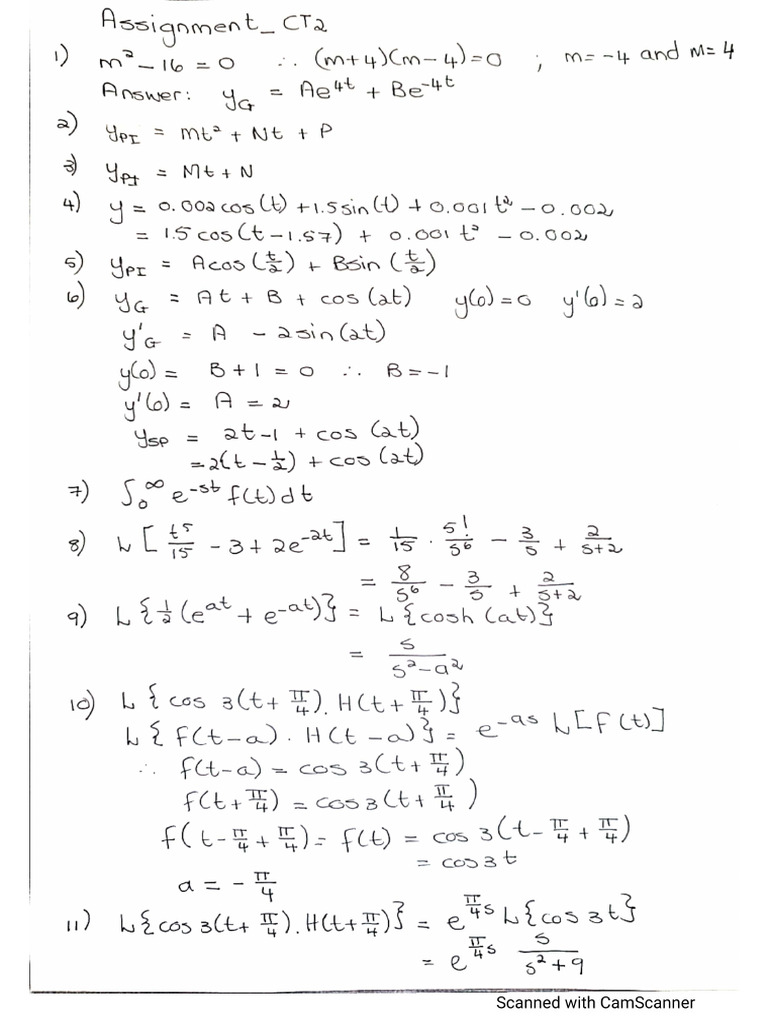 Assignment_CT2
1) m² - 16 = 0 ∴ (m+4)(m-4)=0 ; m=-4 and m=4
Answer: y_G = Ae^4t + Be^-4t
2) y_PI = mt² + Nt + P
3) y_PI = Mt + N
4) y = 0.002cos(t) + 1.5sin(t) + 0.001t² - 0.002
= 1.5 cos(t-1.57) + 0.001 t² - 0.002
5) y_PI = Acos(t/2) + Bsin(t/2)
6) y_G = At + B + cos(2t) y(0)=0 y'(0)=2
y'_G = A - 2sin(2t)
y(0) = B+1=0 ∴ B=-1
y'(0) = A = 2
y_SP = 2t-1 + cos(2t)
=2(t-1/2) + cos(2t)
7) ∫₀^∞ e^-st f(t)dt
8) L[t⁵/15 - 3 + 2e^-2t] = 1/15 · 5!/s⁶ - 3/s + 2/s+2
= 8/s⁶ - 3/s + 2/s+2
9) L{1/2(e^at + e^-at)} = L{cosh(at)}
= s/s²-a²
10) L{cos 3(t+π/4).H(t+π/4)}
L{f(t-a).H(t-a)} = e^-as L[f(t)]
∴ f(t-a) = cos 3(t+π/4)
f(t+π/4) = cos3(t+π/4)
f(t-π/4+π/4) = f(t) = cos 3(t-π/4+π/4)
= cos3t
a = -π/4
11) L{cos 3(t+π/4).H(t+π/4)} = e^π/4s L{cos 3t}
= e^π/4s s/s²+9
Scanned with CamScanner